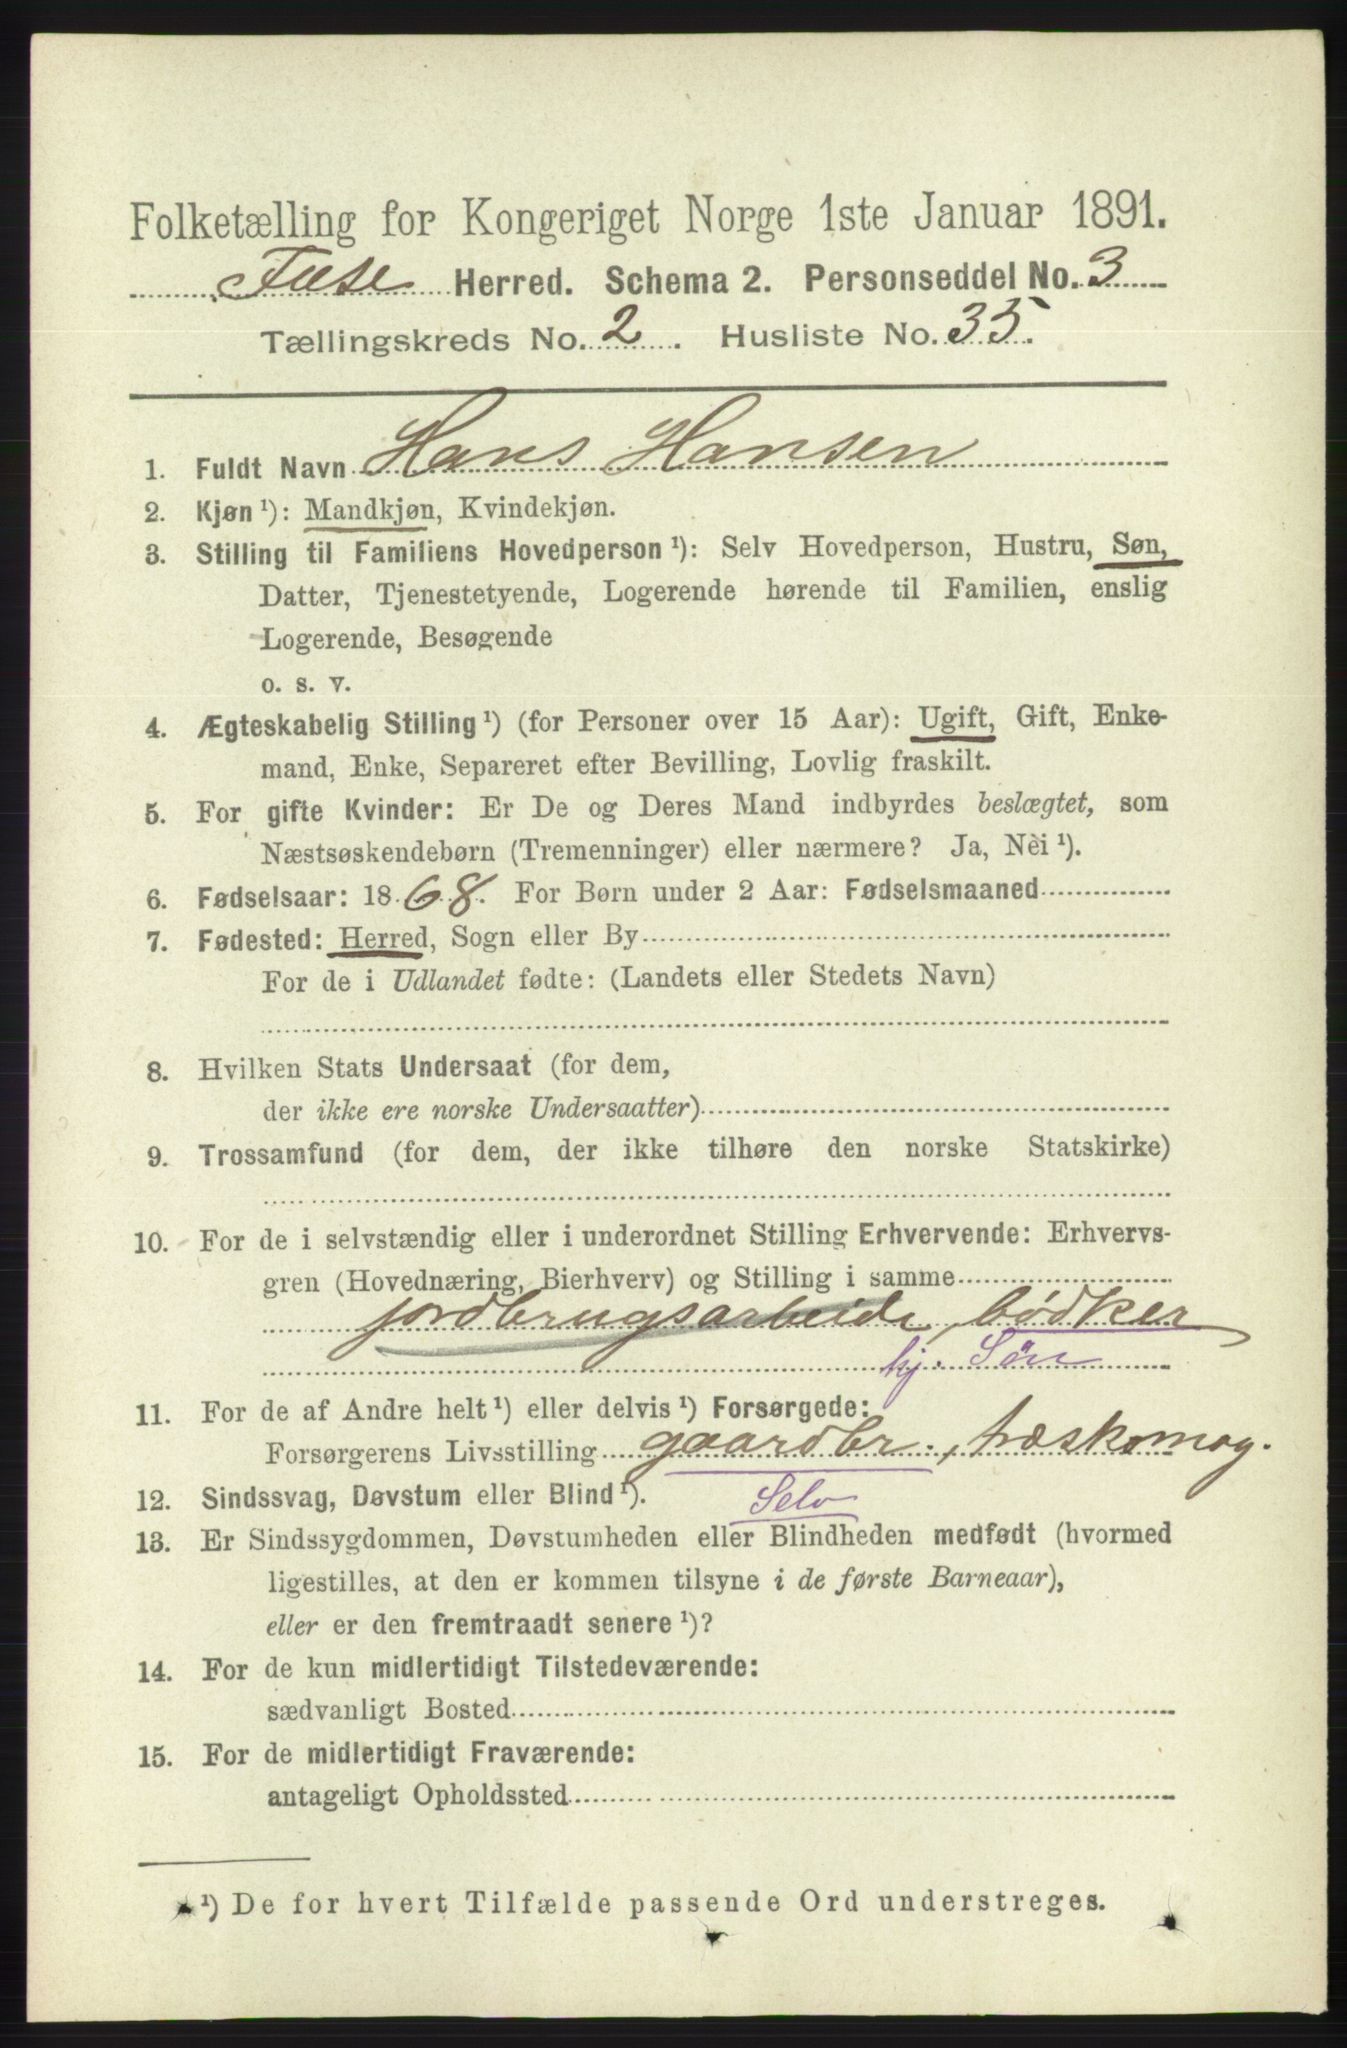 Folketælling for Kongeriget Norge 1ste Januar 1891.
Fuse Herred. Schema 2. Personseddel No. 3
Tællingskreds No. 2. Husliste No. 35.
1. Fuldt Navn Hans Hansen
2. Kjøn ¹): Mandkjøn, Kvindekjøn.
3. Stilling til Familiens Hovedperson ¹): Selv Hovedperson, Hustru, Søn,
Datter, Tjenestetyende, Logerende hørende til Familien, enslig
Logerende, Besøgende
o. s. v.
4. Ægteskabelig Stilling ¹) (for Personer over 15 Aar): Ugift, Gift, Enke-
mand, Enke, Separeret efter Bevilling, Lovlig fraskilt.
5. For gifte Kvinder: Er De og Deres Mand indbyrdes beslægtet, som
Næstsøskendebørn (Tremenninger) eller nærmere? Ja, Nei ¹).
6. Fødselsaar: 1868. For Børn under 2 Aar: Fødselsmaaned
7. Fødested: Herred, Sogn eller By
For de i Udlandet fødte: (Landets eller Stedets Navn)
8. Hvilken Stats Undersaat (for dem,
der ikke ere norske Undersaatter)
9. Trossamfund (for dem, der ikke tilhøre den norske Statskirke)
10. For de i selvstændig eller i underordnet Stilling Erhvervende: Erhvervs-
gren (Hovednæring, Bierhverv) og Stilling i samme
jordbrugsarbeide, bødker
hj. Søn
11. For de af Andre helt ¹) eller delvis ¹) Forsørgede:
Forsørgerens Livsstilling gaardbr., træskomag.
12. Sindssvag, Døvstum eller Blind ¹). Selv
13. Er Sindssygdommen, Døvstumheden eller Blindheden medfødt (hvormed
ligestilles, at den er kommen tilsyne i de første Barneaar),
eller er den fremtraadt senere ¹)?
14. For de kun midlertidigt Tilstedeværende:
sædvanligt Bosted
15. For de midlertidigt Fraværende:
antageligt Opholdssted
¹) De for hvert Tilfælde passende Ord understreges.